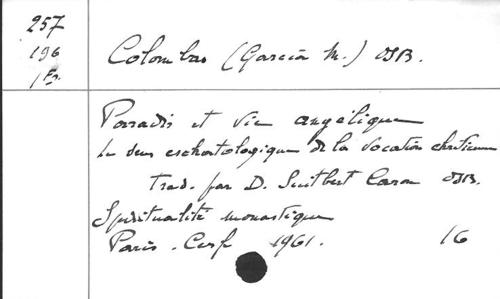 257
196
1 Ex.
Colombas (Garcia M.) OSB.
Paradis et vie angélique
Le sens eschatologique de la vocation chrétienne
Trad. par D. Suitbert Caron OSB.
Spiritualité monastique
Paris. Cerf 1961. 16